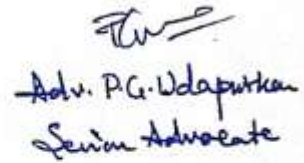 Adv. P.G. Udapurkar
Senior Advocate